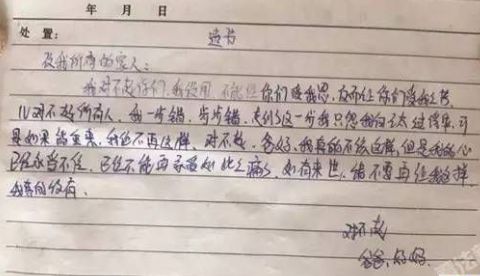 年 月 日
处 置: 遗书
致我所有的家人:
我对不起你们,我没用,不能给你们 反而让你们受我之苦,
对不起所有人,我一步错,步步错,走到这一步我只怨我自己 可
是如果能重来,我绝不再这样,对不起,爸妈,我真的不 这样,但是我的心
已经承当不住,已经不能再承受如此之痛,如有来世,绝不要再 这样,
我真的没有.
对不起
爸爸,妈妈